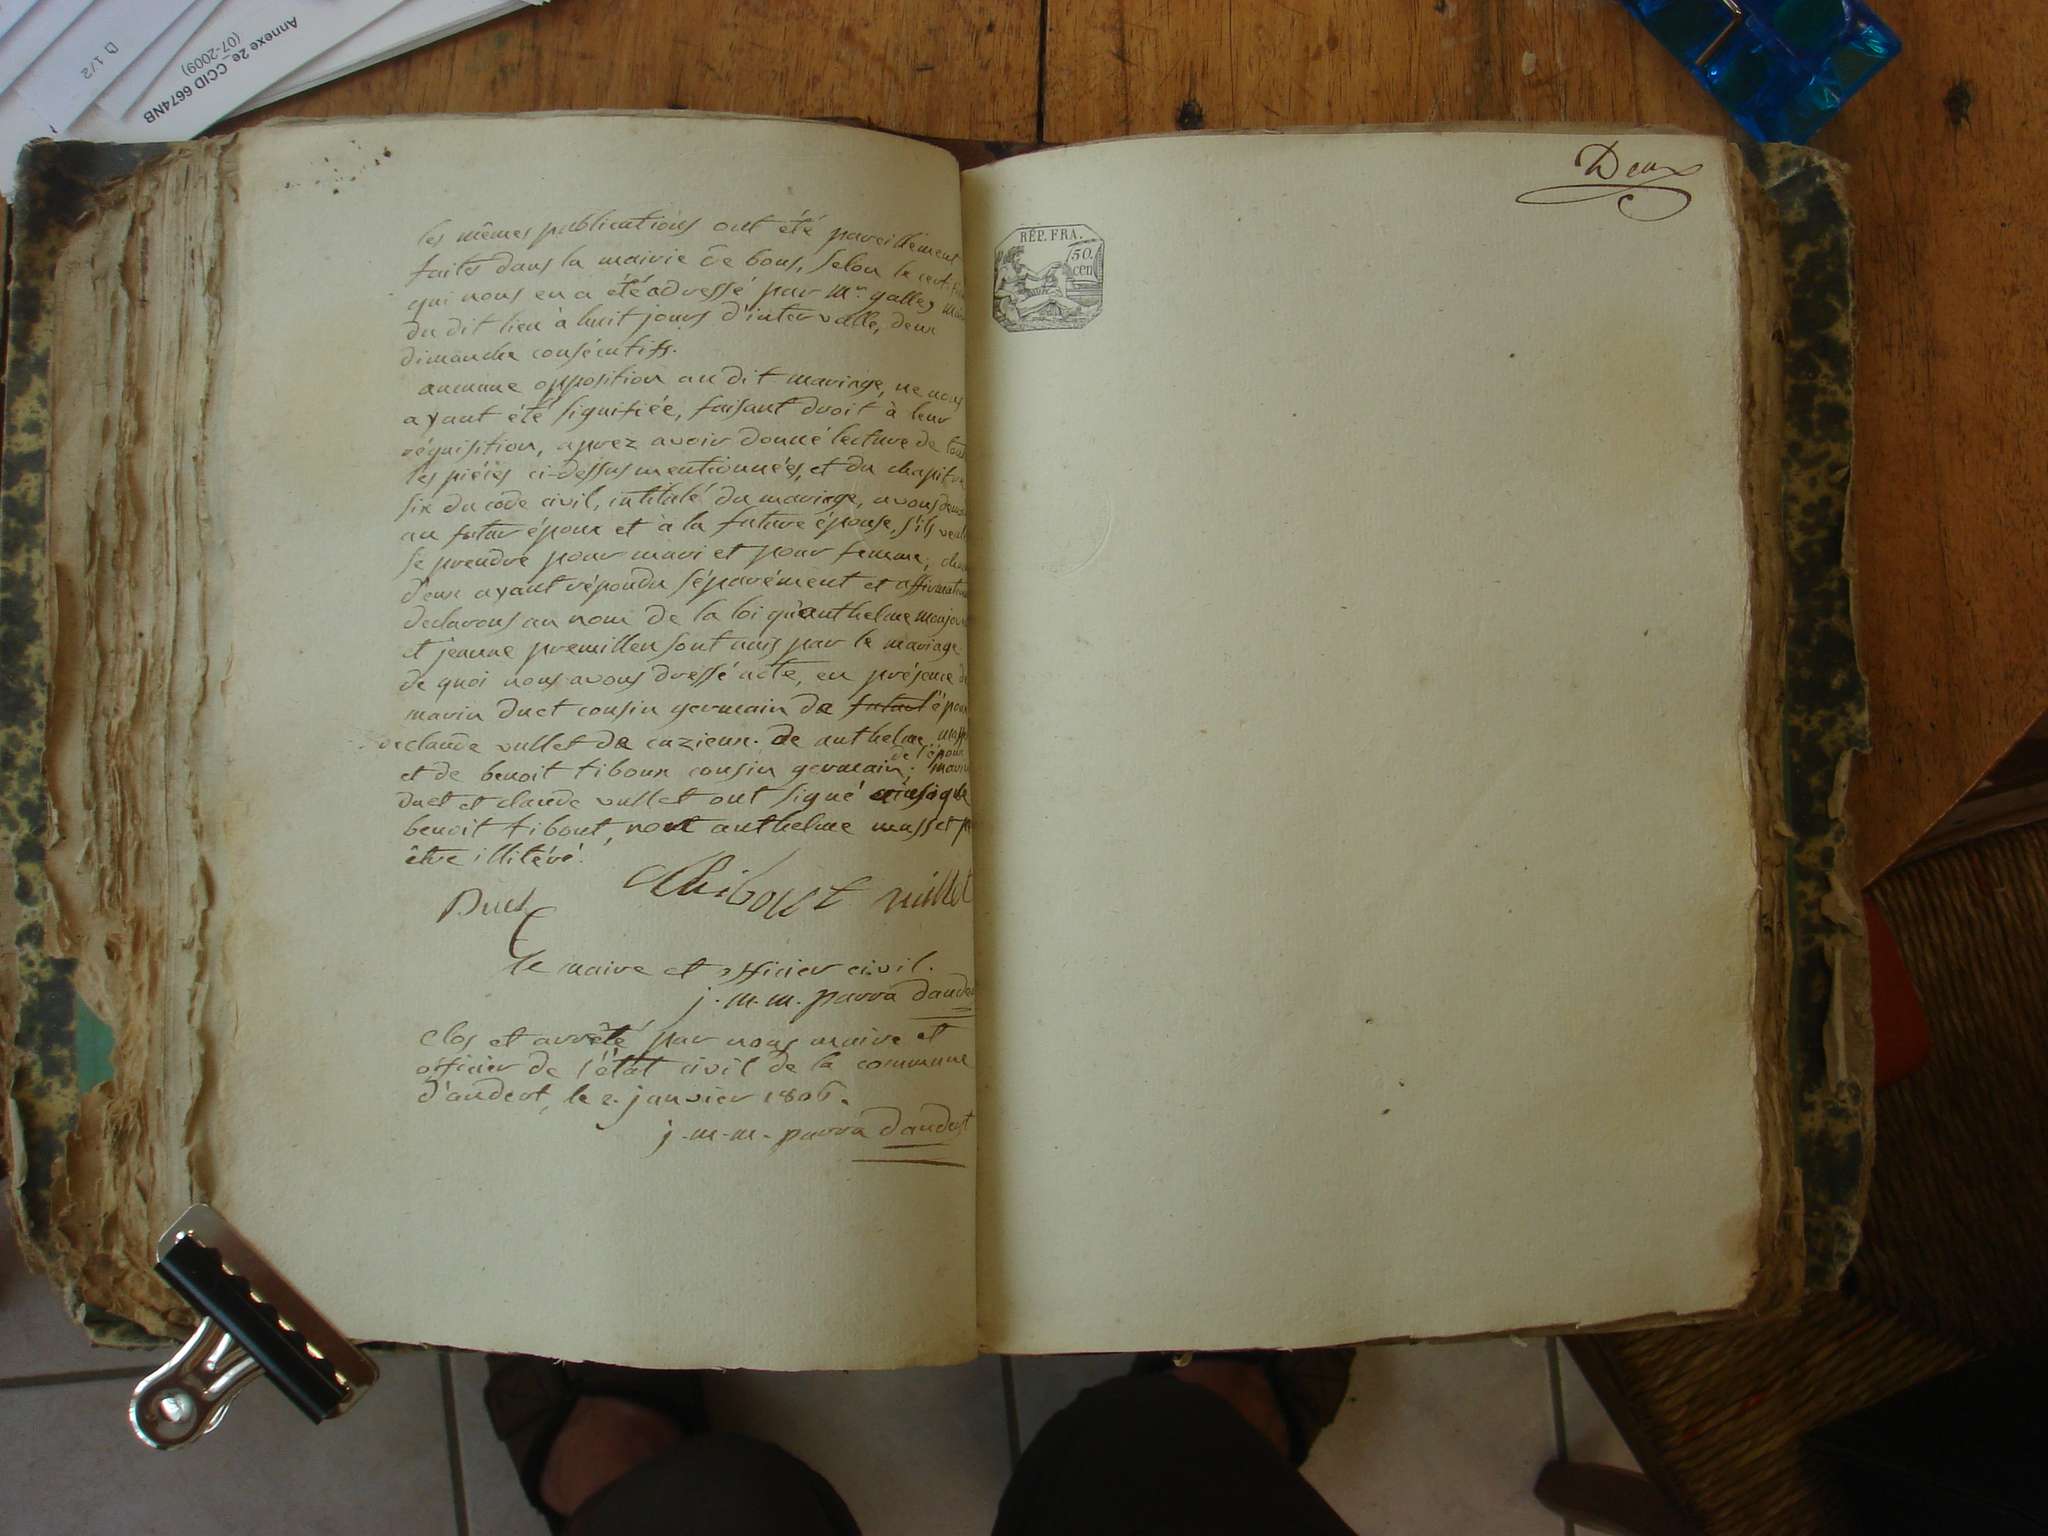 Annexe 2e_CCID 6674NB
(07-2009)
1/2
les mêmes publications ont été pareillement
faites dans la mairie de bons, selon le certifi
qui nous en a été adressé par Mr. galley mair
du dit lieu à huit jours d'intervalle, deux
dimanche consécutifs.
aucunne opposition au dit mariage, ne nous
ayant été signifiée, faisant droit à leur
réquisition, aprez avoir donné lecture de tout
les piéces ci-dessus mentionnées, et du chapitre
six du code civil, intitulé du mariage, avons dem
au futur époux et à la future épouse, s'ils veul
se prendre pour mari et pour femme, cha
d'eux ayant répondu séparément et affirmative
declarons au nom de la loi qu'anthelme
et jeanne premillieu sont unis par le mariage
de quoi nous avons dressé acte, en présence de
marin duet cousin germain de futur l'époux
de claude vullet de cuzieux. de anthelme masse
et de benoit tiboux cousin germain de l'époux; marin
duet et claude vullet ont signé ainsi que
benoit tibout, non anthelme masset p
être illitéré.
Duet Thiboust vullet
le maire et officier civil.
j. m. m. parra dander
Clos et arrêté par nous maire et
officier de l'état civil de la commune
d'andert, le 2. janvier 1806.
j. m. m. parra dandert
Deux
RÉP. FRA.
50.
cen